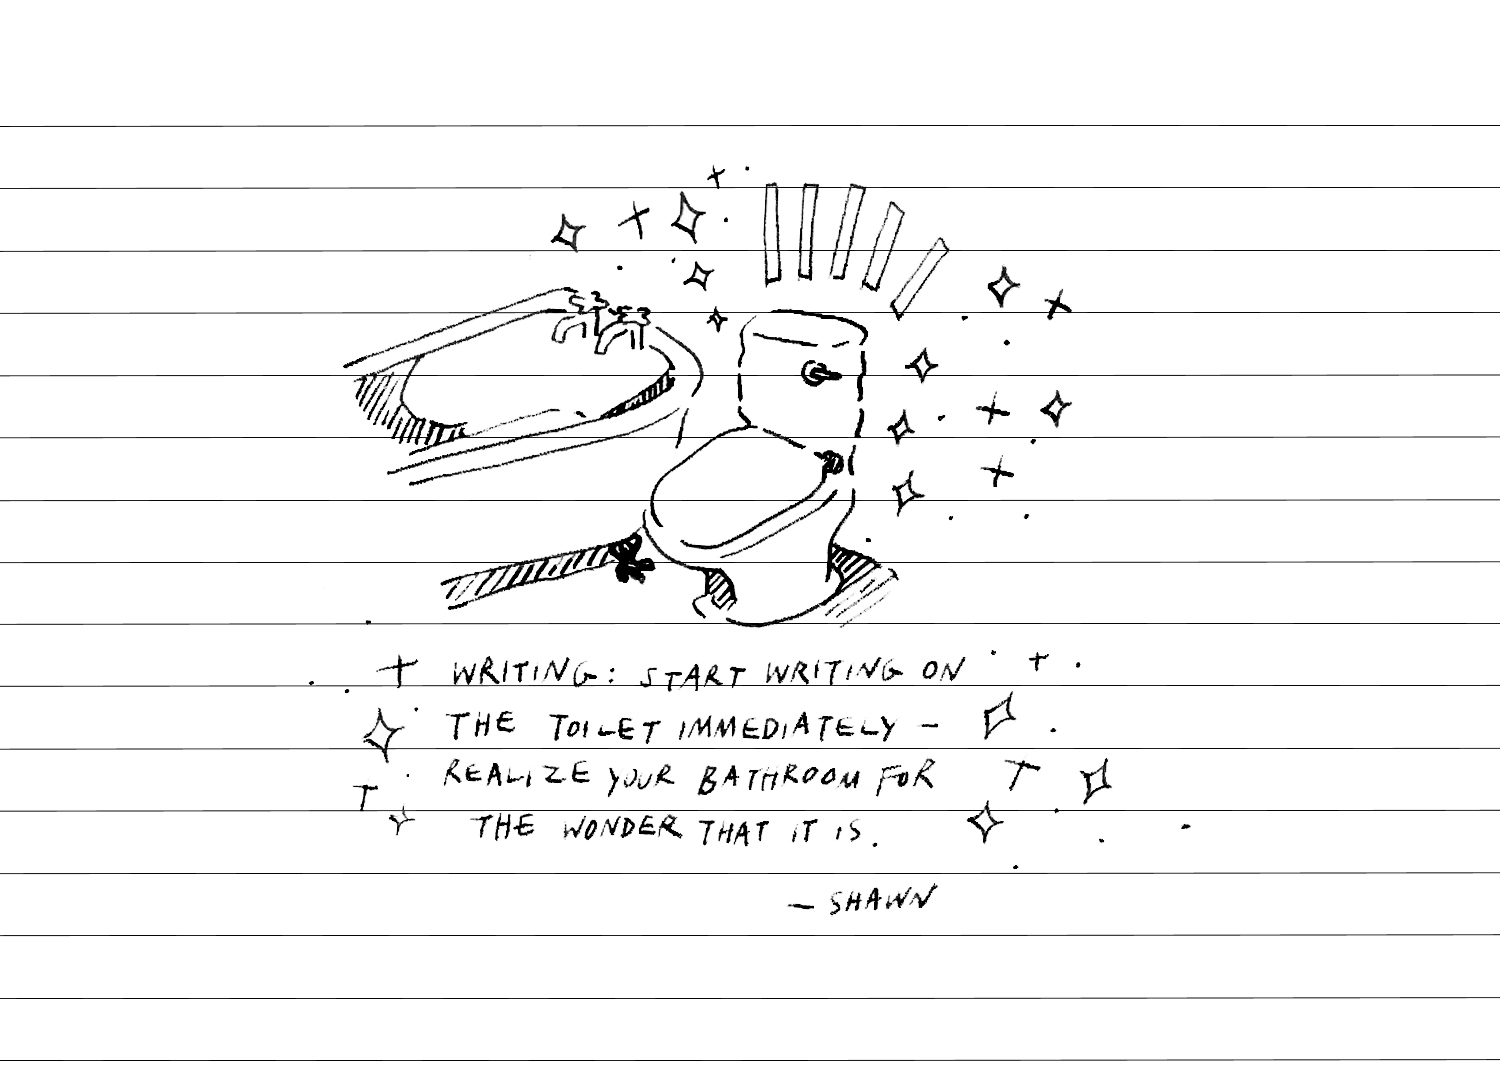 WRITING: START WRITING ON
THE TOILET IMMEDIATELY –
REALIZE YOUR BATHROOM FOR
THE WONDER THAT IT IS.
– SHAWN